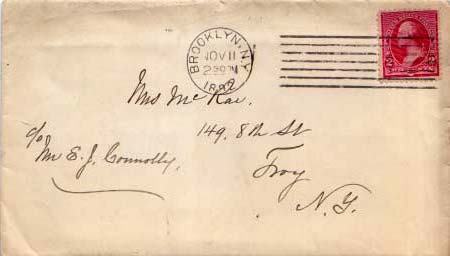 BROOKLYN, N.Y.
NOV 11
2 30 PM
1892
2 2
Mrs McRae.
149, 8th St
c/o
Mr E. J. Connolly,
Troy
N.Y.